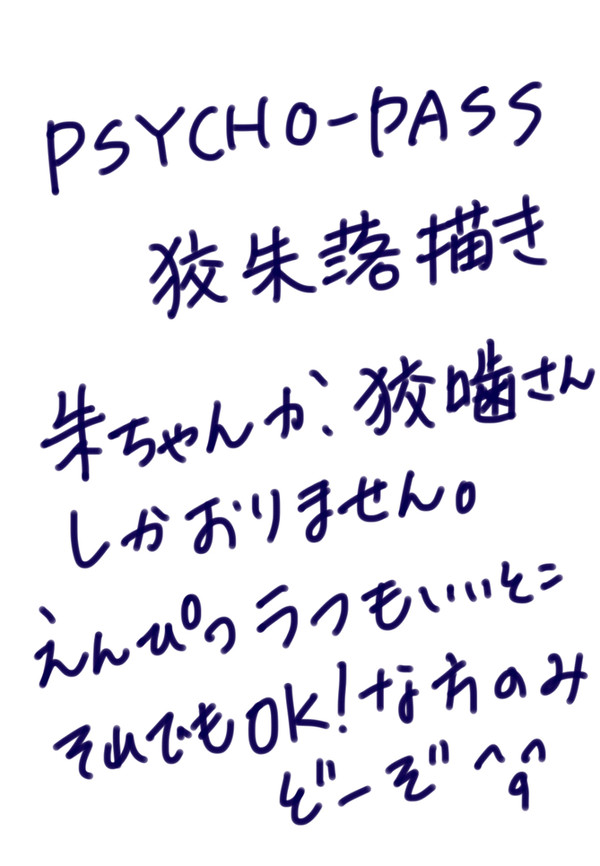 PSYCHO-PASS
狡朱落描き
朱ちゃんか、狡噛さん
しかおりません。
えんぴつラフもいいとこ
それでもOK!な方のみ
ぞーぞ^q^